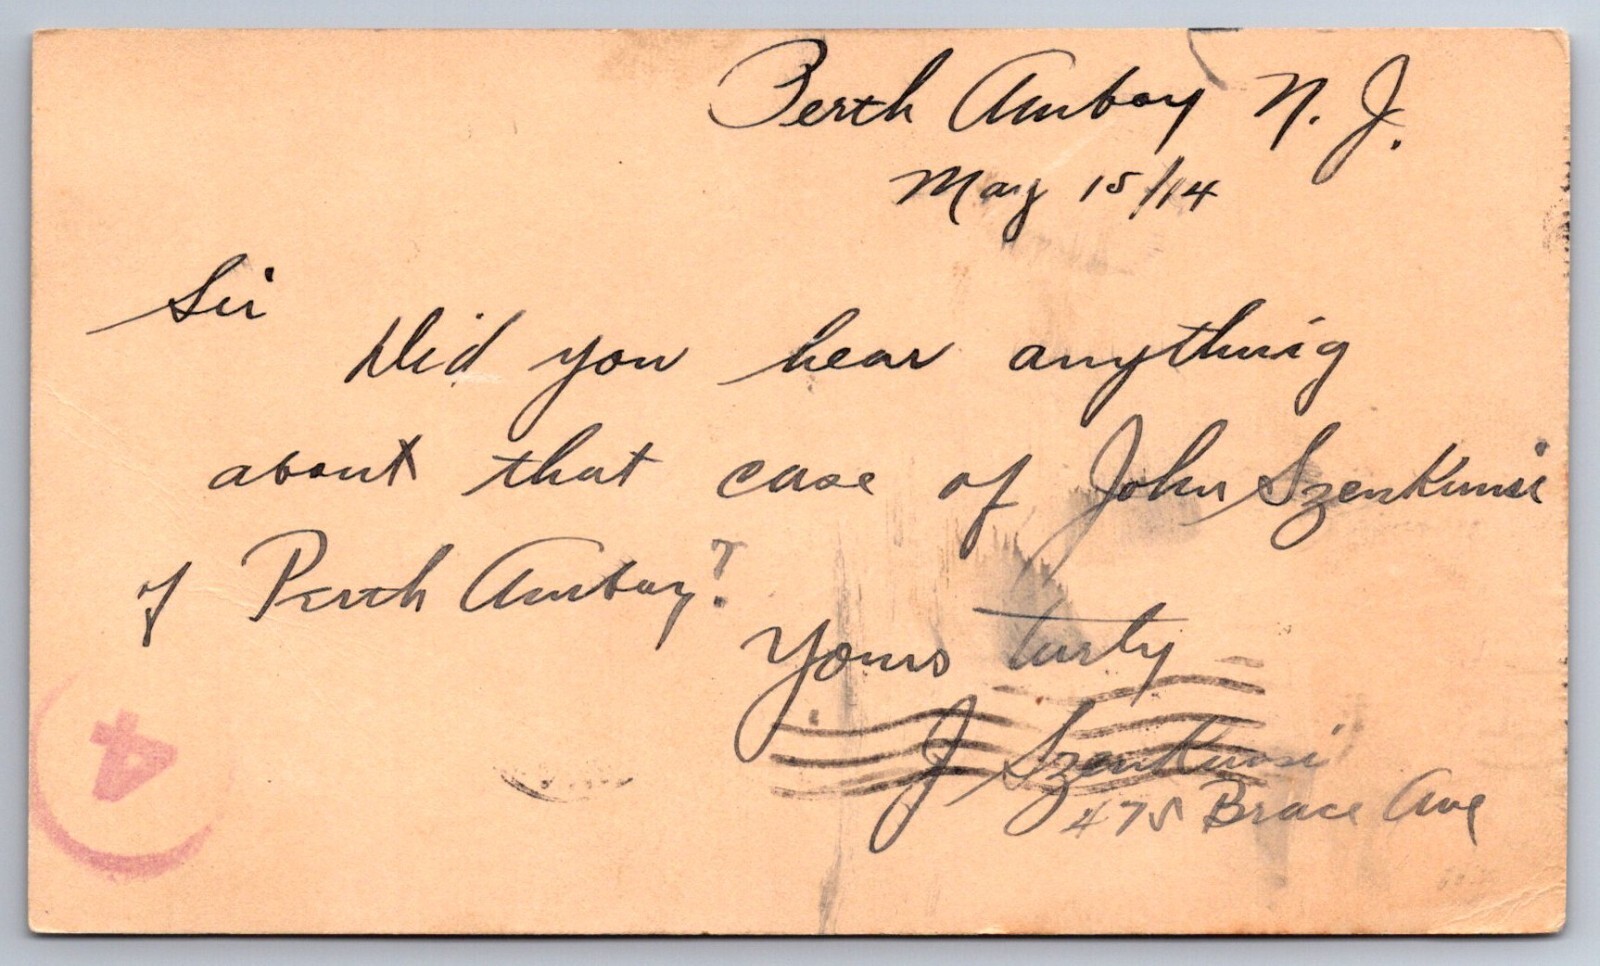 Perth Amboy N. J.
May 15/14
Sir
Did you hear anything
about that case of John Szenkunsi
of Perth Amboy?
Yours turly
J Szenkunsi
475 Brace Ave
4